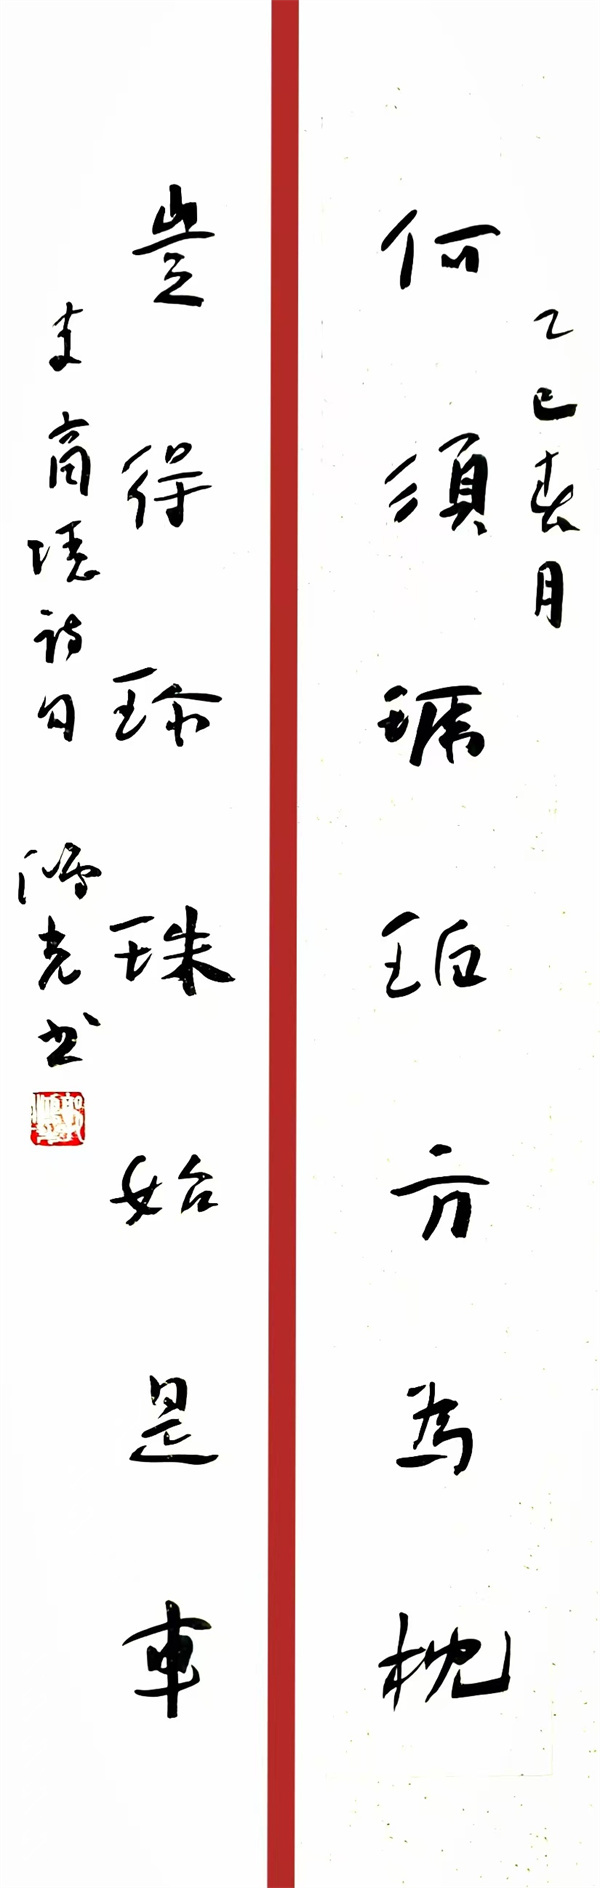 乙巳春月
何須琥珀方為枕
豈得珎珠始是車
李商隱詩句 鴻光書